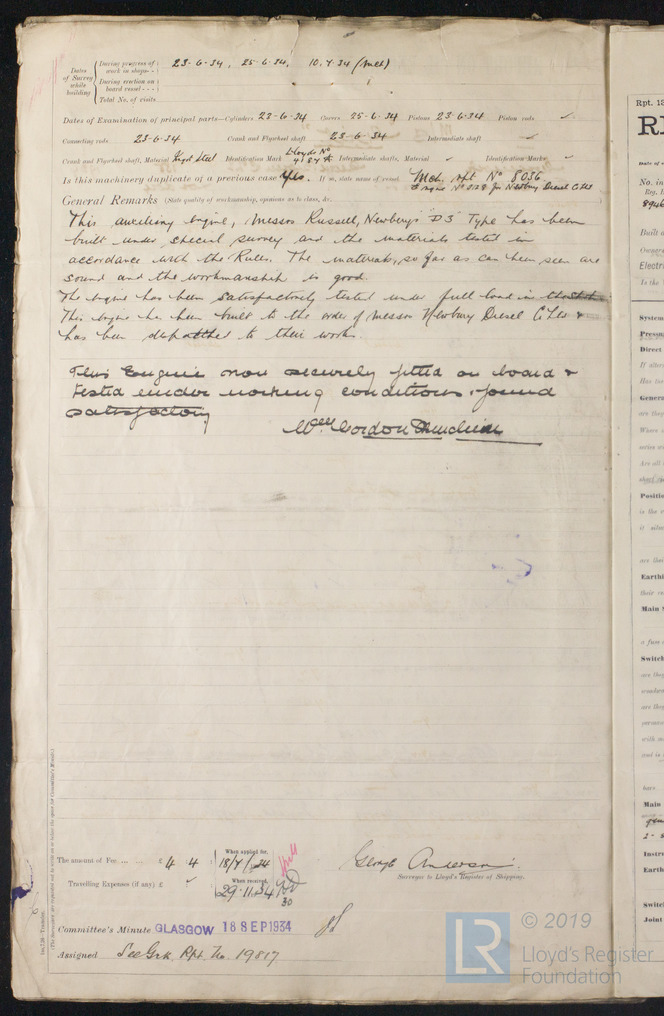 Dates of Survey while building
During progress of work in shops - - 23-6-34, 25-6-34, 10.7.34 (Met)
During erection on board vessel - - -
Total No. of visits
Dates of Examination of principal parts—Cylinders 23-6-34 Covers 25-6-34 Pistons 23-6-34 Piston rods ✓
Connecting rods 23-6-34 Crank and Flywheel shaft 23-6-34 Intermediate shaft ✓
Crank and Flywheel shaft, Material Ingot Steel Identification Mark Lloyds No Intermediate shafts, Material ✓ Identification Marks ✓
Is this machinery duplicate of a previous case Yes. If so, state name of vessel Mch. rpt No 8036
Engine No for Newbury Diesel Co Ltd
General Remarks (State quality of workmanship, opinions as to class, &c.
This auxiliary Engine, Messrs Russell, Newbery's "D3" Type has been
built under special survey and the materials tested in
accordance with the Rules. The materials, so far as can been seen are
sound and the workmanship is good.
The engine has been satisfactorily tested under full load in
This engine has been built to the order of Messrs Newbury Diesel Co Ltd &
has been dispatched to their works.
This Engine now securely fitted on board &
tested under working conditions & found
satisfactory
Wm Gordon
The amount of Fee ... ... £ 4 : 4 : When applied for, 18/7/34
Travelling Expenses (if any) £ ✓ When received, 29.11.34
30
George Anderson.
Surveyor to Lloyd's Register of Shipping.
Committee's Minute GLASGOW 18 SEP 1934
Assigned See Grk. Rpt. No 19817
© 2019
LR
Lloyd's Register
Foundation
Rpt. 13
No. in
Reg. B
8946
Built a
Owner
Electri
Is the
System
Pressu
Direct
If alter
Has the
Genera
are they
Where
Are all
Positio
is the
it situ
are thei
Earthi
their re
Main S
a fuse
Switch
are the
are they
with m
and is
Main
Instru
Earth
Switc
Joint